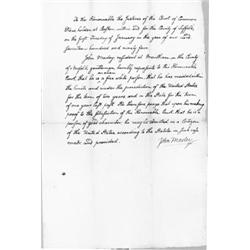 To the Honorable the Justices of the Court of Common
Pleas holden at Boston within and for the County of Suffolk
on the first Tuesday of January in the year of our Lord
seventeen hundred and ninety five.
John Maсley resident at in the County
of Norfolk, gentleman, humbly represents to the Honorable
Court, that he is a free white person, that he has resided within
the limits and under the jurisdiction of the United States
for the term of two years and in this State for the term
of one year last past. He therefore prays that upon his making
proof to the satisfaction of the Honorable Court that he is a
person of good character he may be admitted a Citizen
of the United States according to the Statute in such case
made and provided.
John